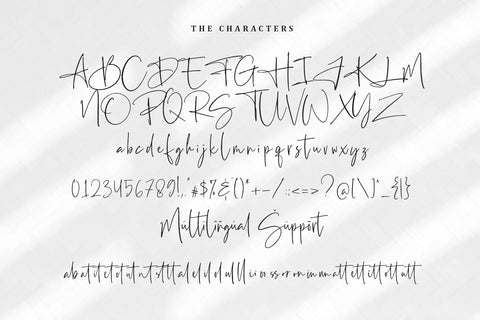 THE CHARACTERS
ABCDEFGHIJKLM
NOPQRSTUVWXYZ
abcdefghijklmnopqrstuvwxyz
0123456789!,"#$%&'()*+-/:;<=>?@[\]^_{|}
Múltilingüal Süppört